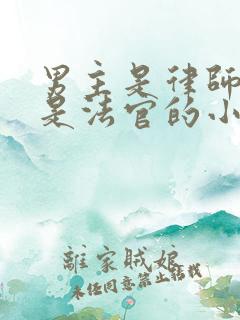 男主是律師
是法官的小
離家賊娘
未任同意禁止轉載